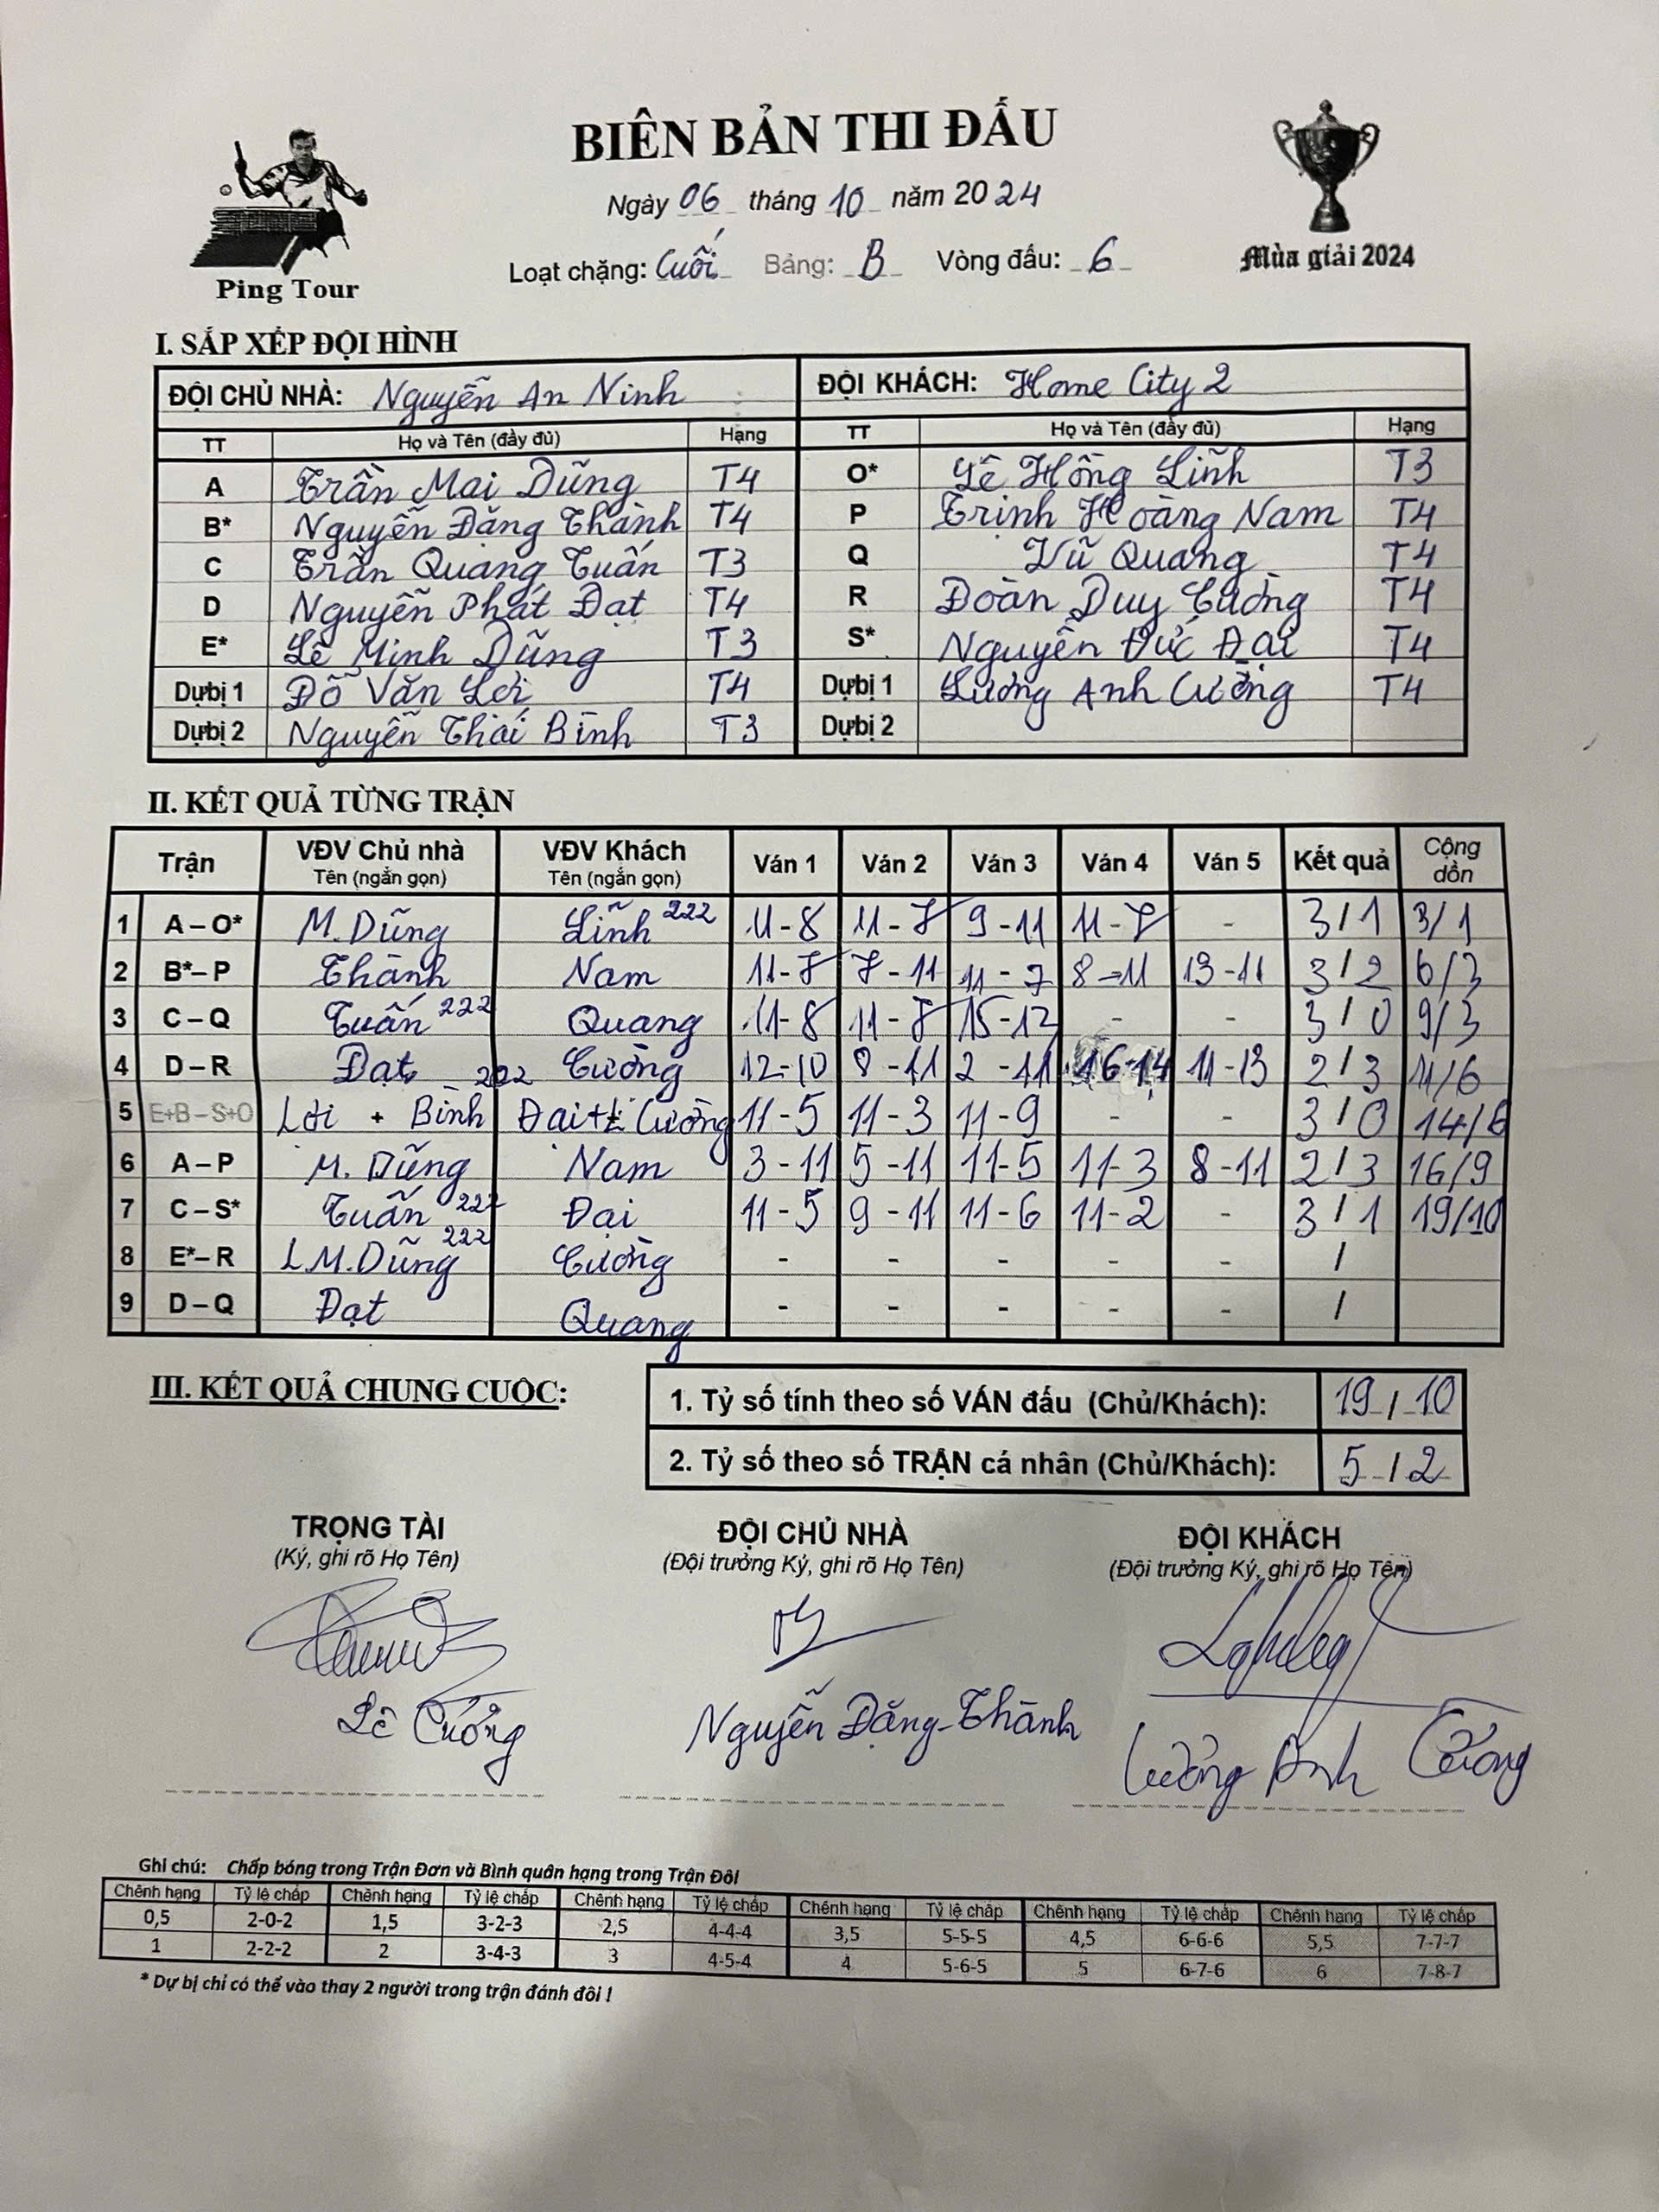 BIÊN BẢN THI ĐẤU
Ngày 06 tháng 10 năm 2024
Loạt chặng: Cuối Bảng: B Vòng đấu: 6
Ping Tour
Mùa giải 2024
I. SẮP XẾP ĐỘI HÌNH
ĐỘI CHỦ NHÀ: Nguyễn An Ninh ĐỘI KHÁCH: Home City 2
TT Họ và Tên (đầy đủ) Hạng TT Họ và Tên (đầy đủ) Hạng
A Trần Mai Dũng T4 O* Lê Hồng Lĩnh T3
B* Nguyễn Đăng Thành T4 P Trịnh Hoàng Nam T4
C Trần Quang Tuấn T3 Q Vũ Quang T4
D Nguyễn Phát Đạt T4 R Đoàn Duy Cường T4
E* Lê Minh Dũng T3 S* Nguyễn Đức Đại T4
Dự bị 1 Đỗ Văn Lợi T4 Dự bị 1 Lương Anh Cường T4
Dự bị 2 Nguyễn Thái Bình T3 Dự bị 2
II. KẾT QUẢ TỪNG TRẬN
Trận VĐV Chủ nhà Tên (ngắn gọn) VĐV Khách Tên (ngắn gọn) Ván 1 Ván 2 Ván 3 Ván 4 Ván 5 Kết quả Cộng dồn
1 A – O* M. Dũng Lĩnh 222 11-8 11-7 9-11 11-7 - 3/1 3/1
2 B* – P Thành Nam 11-7 7-11 11-7 8-11 13-11 3/2 6/3
3 C – Q Tuấn 222 Quang 11-8 11-7 15-12 - - 3/0 9/3
4 D – R Đạt Cường 12-10 8-11 2-11 16-14 11-13 2/3 11/6
5 E+B – S+O Lợi + Bình 222 Đại + Cường 11-5 11-3 11-9 - - 3/0 14/6
6 A – P M. Dũng Nam 3-11 5-11 11-5 11-3 8-11 2/3 16/9
7 C – S* Tuấn 222 Đại 11-5 9-11 11-6 11-2 - 3/1 19/10
8 E* – R L.M.Dũng 222 Cường - - - - - /
9 D – Q Đạt Quang - - - - - /
III. KẾT QUẢ CHUNG CUỘC:
1. Tỷ số tính theo số VÁN đấu (Chủ/Khách): 19 / 10
2. Tỷ số theo số TRẬN cá nhân (Chủ/Khách): 5 / 2
TRỌNG TÀI ĐỘI CHỦ NHÀ ĐỘI KHÁCH
(Ký, ghi rõ Họ Tên) (Đội trưởng Ký, ghi rõ Họ Tên) (Đội trưởng Ký, ghi rõ Họ Tên)
Lê Cường Nguyễn Đăng Thành Lương Anh Cường
Ghi chú: Chấp bóng trong Trận Đơn và Bình quân hạng trong Trận Đôi
Chênh hạng Tỷ lệ chấp Chênh hạng Tỷ lệ chấp Chênh hạng Tỷ lệ chấp Chênh hạng Tỷ lệ chấp Chênh hạng Tỷ lệ chấp Chênh hạng Tỷ lệ chấp
0,5 2-0-2 1,5 3-2-3 2,5 4-4-4 3,5 5-5-5 4,5 6-6-6 5,5 7-7-7
1 2-2-2 2 3-4-3 3 4-5-4 4 5-6-5 5 6-7-6 6 7-8-7
* Dự bị chỉ có thể vào thay 2 người trong trận đánh đôi !